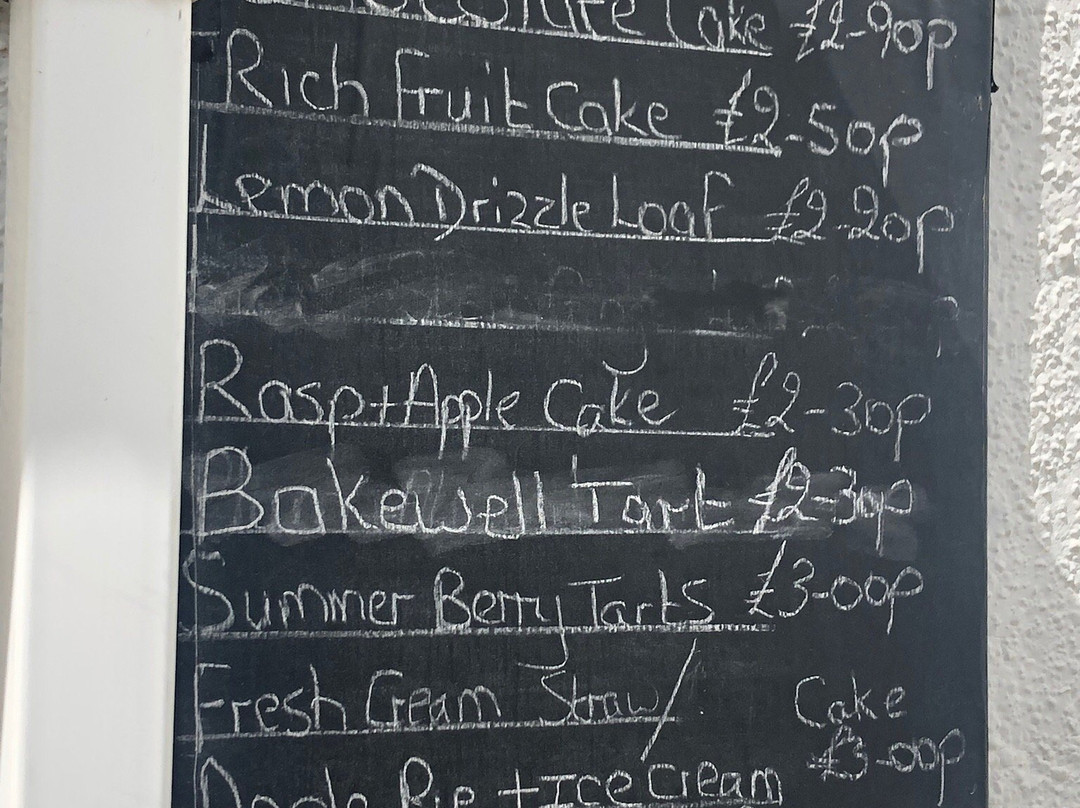 Chocolate Cake £2-90p
Rich Fruit Cake £2-50p
Lemon Drizzle Loaf £2-20p
Rasp+Apple Cake £2-30p
Bakewell Tart £2-30p
Summer Berry Tarts £3-00p
Fresh Cream Straw/ Cake
£3-00p
Pie + Ice Cream